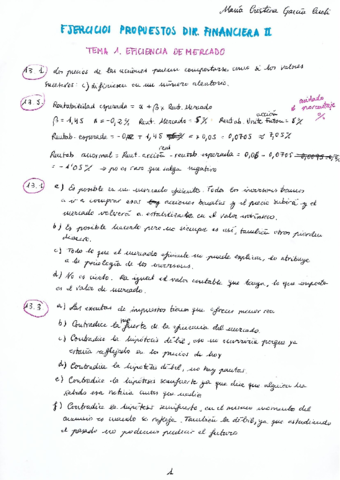 María Cristina García
EJERCICIOS PROPUESTOS DIR. FINANCIERA II
TEMA 1. EFICIENCIA DE MERCADO
13.1 Los precios de las acciones pueden comportarse como si los valores
c) difiriesen en un número aleatorio.
13.5 Rentabilidad esperada = α + β × Rent. Mercado
cuidado
porcentaje
%
acción
β = 1,45 α = -0,2% Rent. Mercado = 5% Rentab. United = 6%
Rentab. esperada = 1,45 × 0,05 = 0,0705 = 7,05%
Rentab anormal = Rent. acción - rentab esperada = 0,06 - 0,0705
= -1'05% → no es raro que salga negativo
a) Es posible en un mercado eficiente. Todos los inversores
a comprar esas acciones y el precio subirá y el
mercado volverá a estabilizarse en el valor
b) Es posible hacerlo pero no siempre es así, también otros pierden
dinero.
c) Todo lo que el mercado eficiente no puede explicar, lo atribuye
a la psicología de los inversores.
d) No es cierto. Da igual el valor contable que tenga, lo que importa
es el valor de mercado.
13.3 a) Los exentos de impuestos tienen que ofrecer menor
b) Contradice la fuerte de la eficiencia del mercado.
c) Contradice la hipótesis débil, eso no ocurriría porque ya
estaría reflejado en los precios de hoy
d) Contradice la hipótesis débil, no hay pautas
e) Contradice la hipótesis semifuerte ya que dice que alguien ha
sabido esa noticia antes que nadie
f) Contradice la hipótesis semifuerte, en el mismo momento del
anuncio es cuando lo refleja. También la débil, ya que estudiando
el pasado no podemos predecir el futuro
1